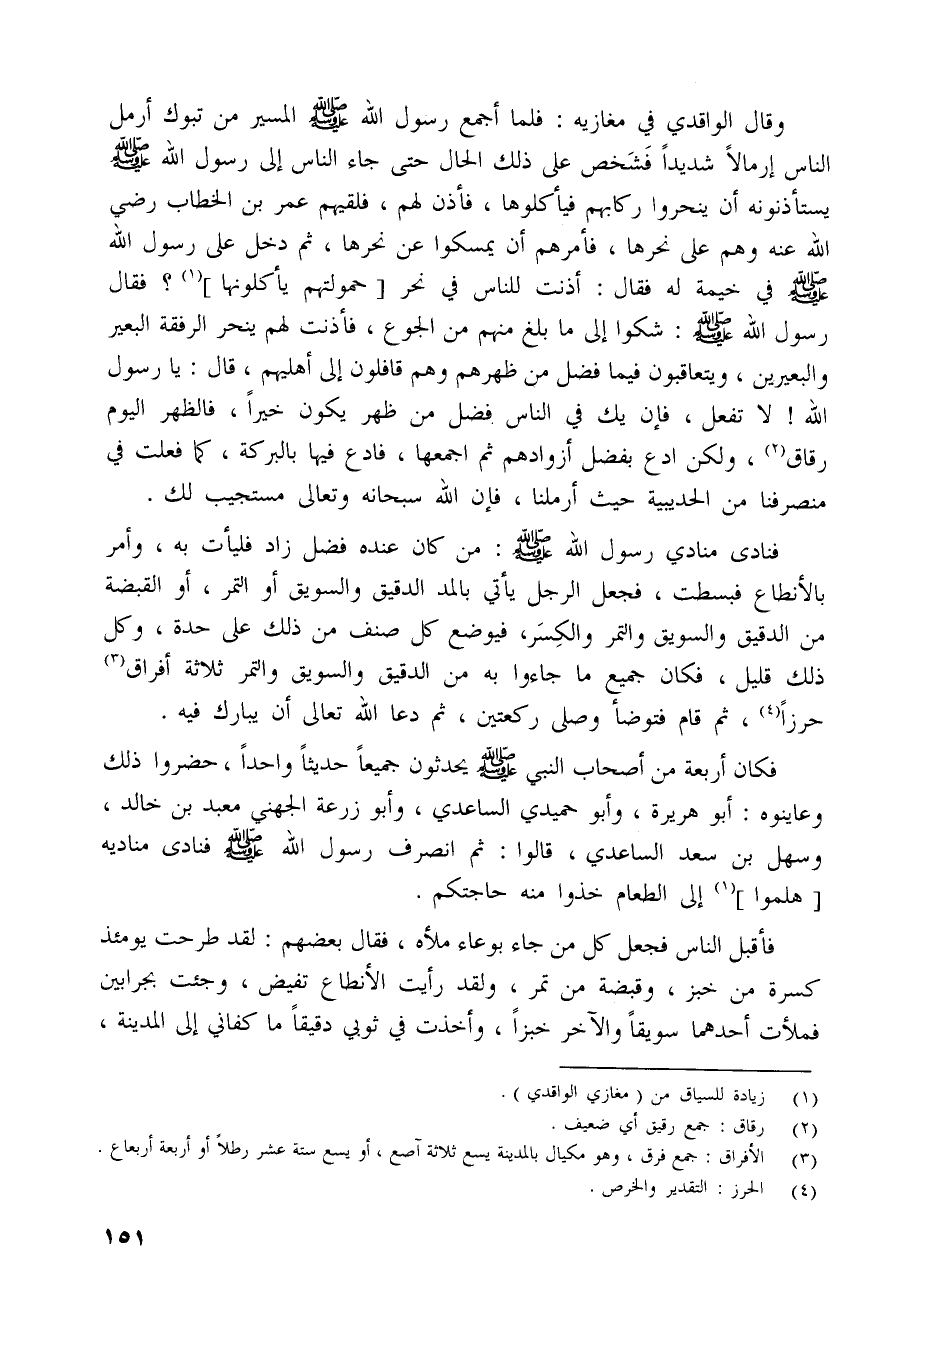 وقال الواقدي في مغازيه : فلما أجمع رسول الله ﷺ المسير من تبوك أرمل
الناس إرمالاً شديداً فَشَخص على ذلك الحال حتى جاء الناس إلى رسول الله ﷺ
يستأذنونه أن ينحروا ركابهم فيأكلوها ، فأذن لهم ، فلقيهم عمر بن الخطاب رضي
الله عنه وهم على نحرها ، فأمرهم أن يمسكوا عن نحرها ، ثم دخل على رسول الله
ﷺ في خيمة له فقال : أذنت للناس في نحر [ حمولتهم يأكلونها ](١) ؟ فقال
رسول الله ﷺ : شكوا إلى ما بلغ منهم من الجوع ، فأذنت لهم ينحر الرفقة البعير
والبعيرين ، ويتعاقبون فيما فضل من ظهرهم وهم قافلون إلى أهليهم ، قال : يا رسول
الله ! لا تفعل ، فإن يك في الناس فضل من ظهر يكون خيراً ، فالظهر اليوم
رقاق(٢) ، ولكن ادع بفضل أزوادهم ثم اجمعها ، فادع فيها بالبركة ، كما فعلت في
منصرفنا من الحديبية حيث أرملنا ، فإن الله سبحانه وتعالى مستجيب لك .
فنادى منادي رسول الله ﷺ : من كان عنده فضل زاد فليأت به ، وأمر
بالأنطاع فبسطت ، فجعل الرجل يأتي بالمد الدقيق والسويق أو التمر ، أو القبضة
من الدقيق والسويق والتمر والكِسَر، فيوضع كل صنف من ذلك على حدة ، وكل
ذلك قليل ، فكان جميع ما جاءوا به من الدقيق والسويق والتمر ثلاثة أفراق(٣)
حرزاً(٤) ، ثم قام فتوضأ وصلى ركعتين ، ثم دعا الله تعالى أن يبارك فيه .
فكان أربعة من أصحاب النبي ﷺ يحدثون جميعاً حديثاً واحداً ، حضروا ذلك
وعاينوه : أبو هريرة ، وأبو حميدي الساعدي ، وأبو زرعة الجهني معبد بن خالد ،
وسهل بن سعد الساعدي ، قالوا : ثم انصرف رسول الله ﷺ فنادى مناديه
[ هلموا ](١) إلى الطعام خذوا منه حاجتكم .
فأقبل الناس فجعل كل من جاء بوعاء ملأه ، فقال بعضهم : لقد طرحت يومئذ
كسرة من خبز ، وقبضة من تمر ، ولقد رأيت الأنطاع تفيض ، وجئت بجرابين
فملأت أحدهما سويقاً والآخر خبزاً ، وأخذت في ثوبي دقيقاً ما كفاني إلى المدينة ،
(١) زيادة للسياق من ( مغازي الواقدي ) .
(٢) رقاق : جمع رقيق أي ضعيف .
(٣) الأفراق : جمع فرق ، وهو مكيال بالمدينة يسع ثلاثة آصع ، أو يسع ستة عشر رطلاً أو أربعة أرباع .
(٤) الحرز : التقدير والخرص .
١٥١